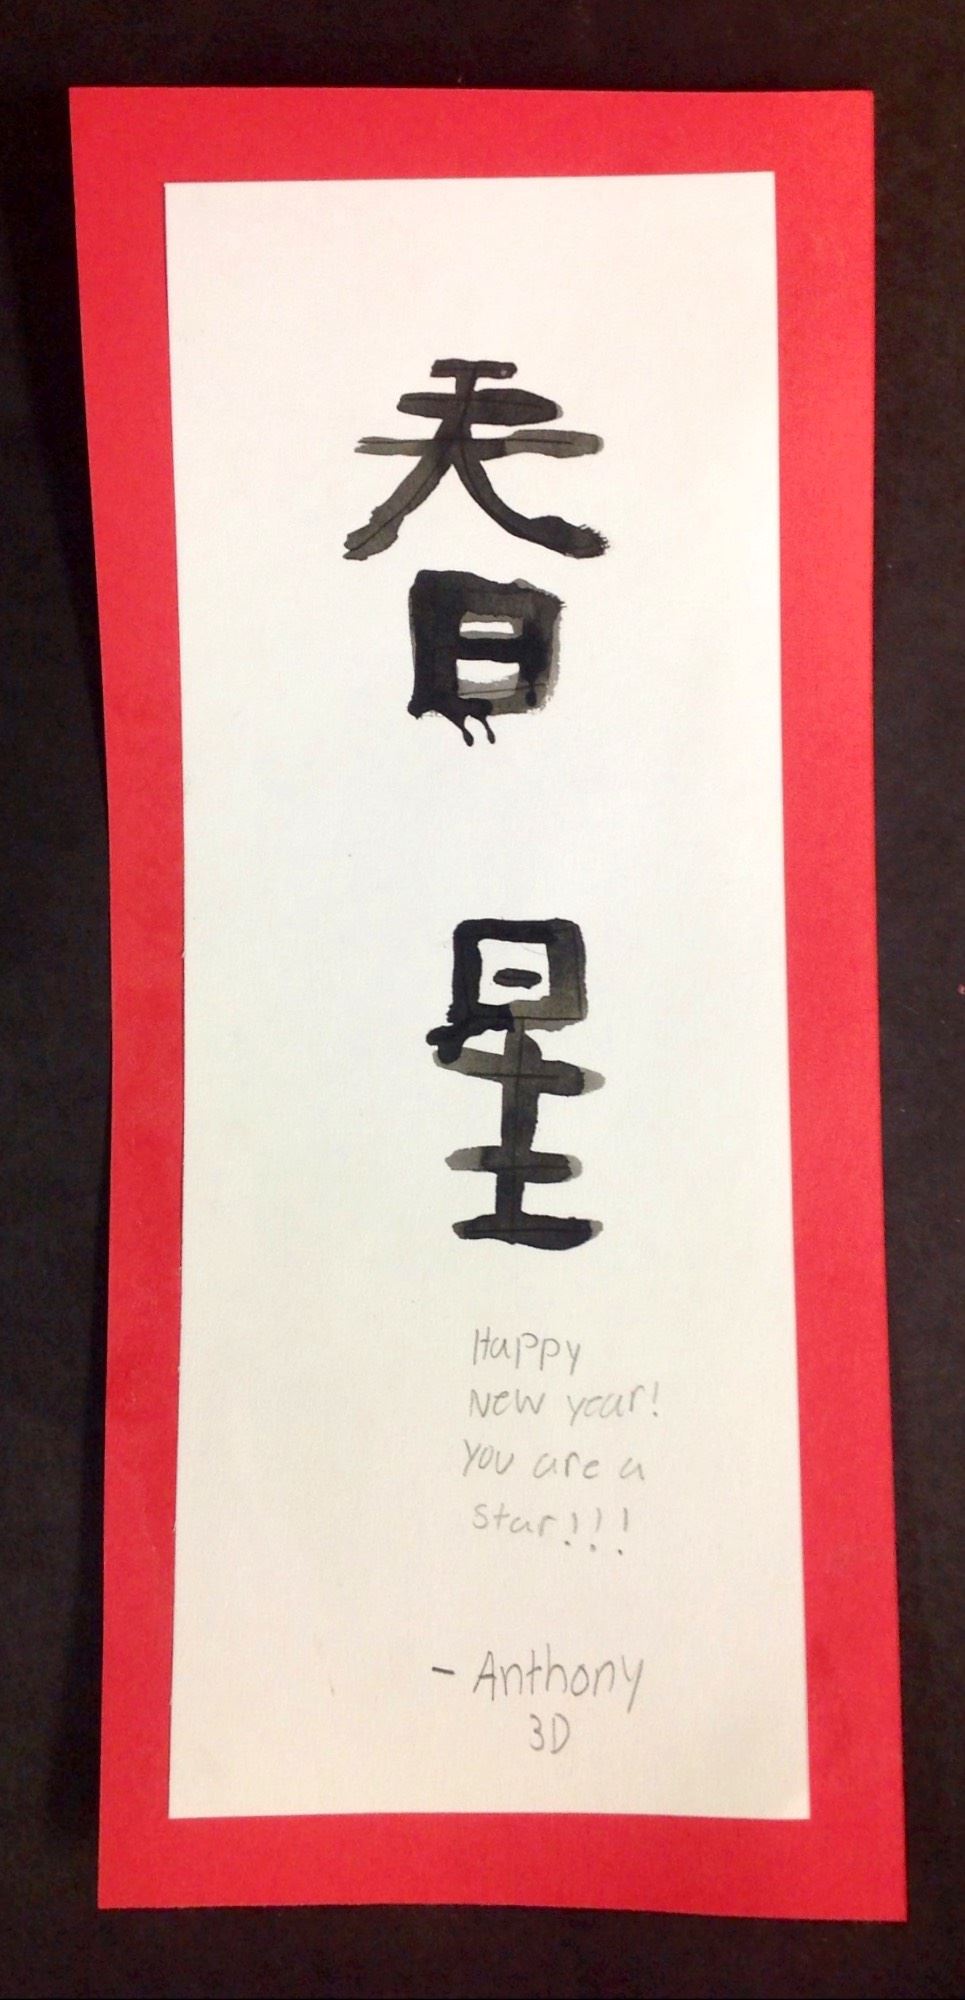 春
星
Happy
New year!
you are a
star!!!
- Anthony
3D